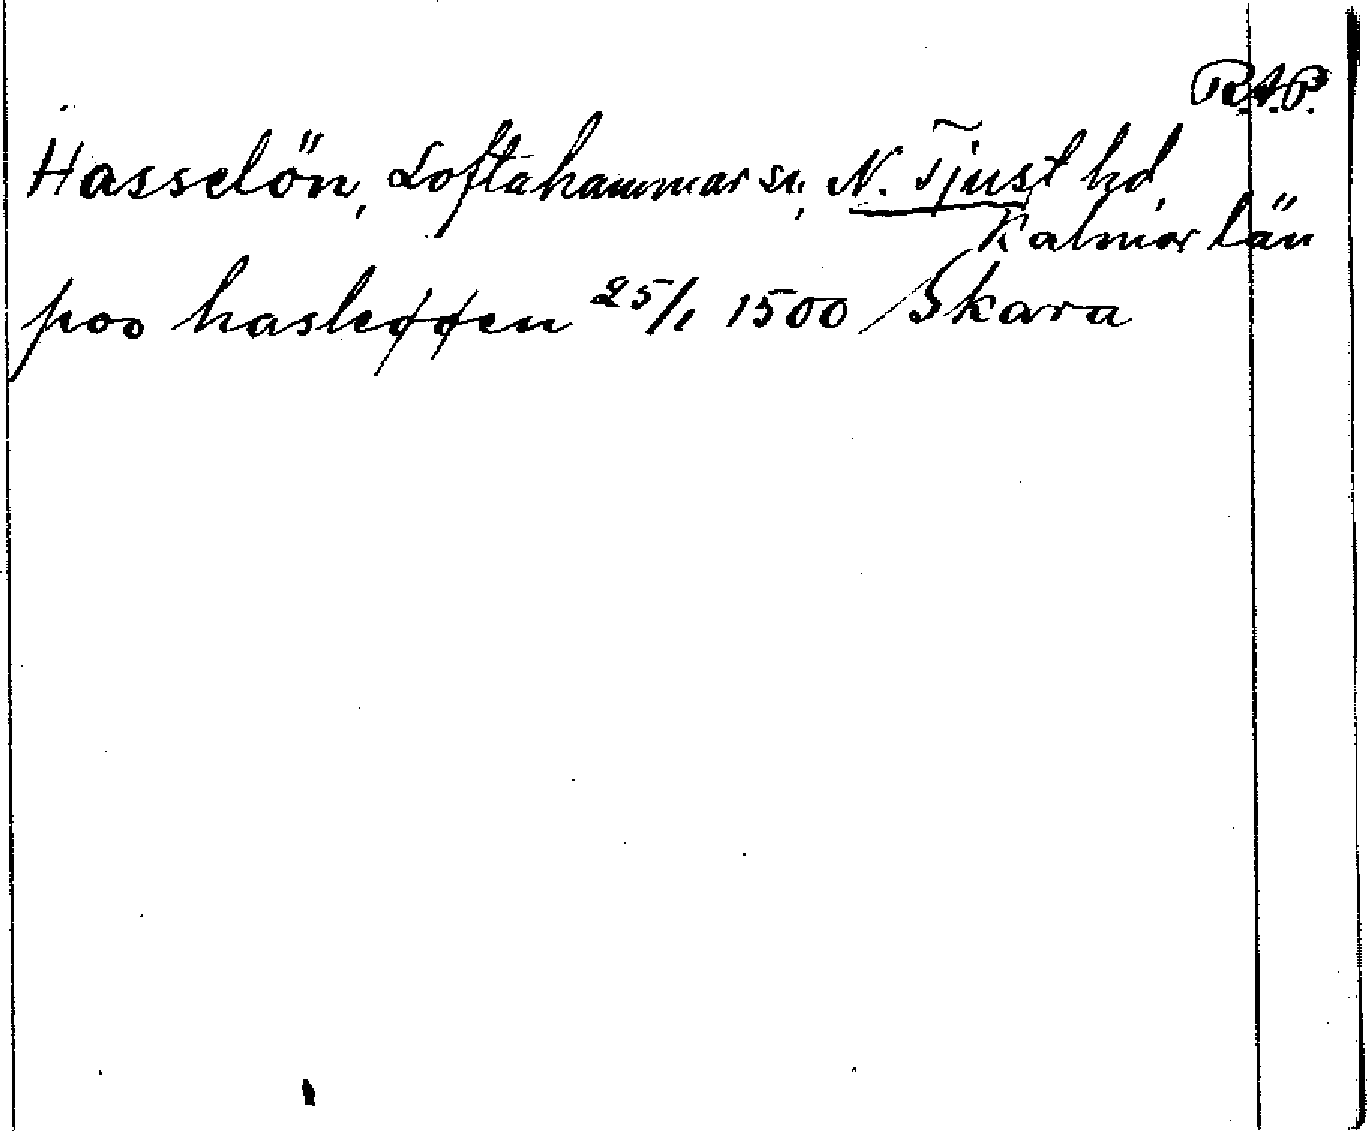 R.A.P.
Hasselön, Loftahammar sn, N. Tjust hd,
Kalmar län
poo hasleøøen 25/1 1500 Skara